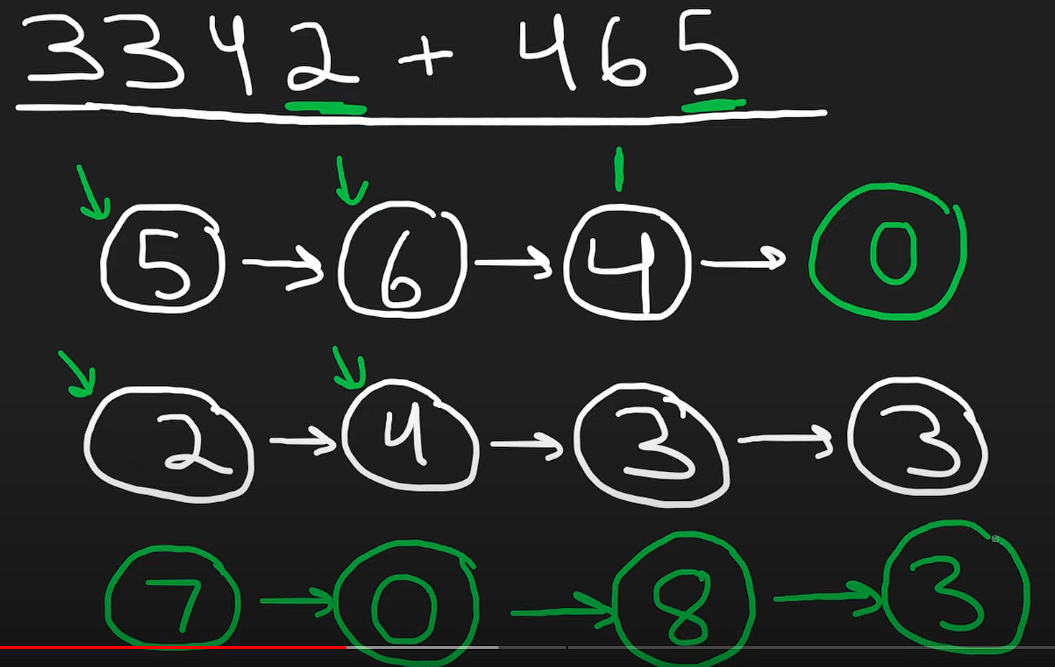 3342 + 465
5 → 6 → 4 → 0
2 → 4 → 3 → 3
7 → 0 → 8 → 3